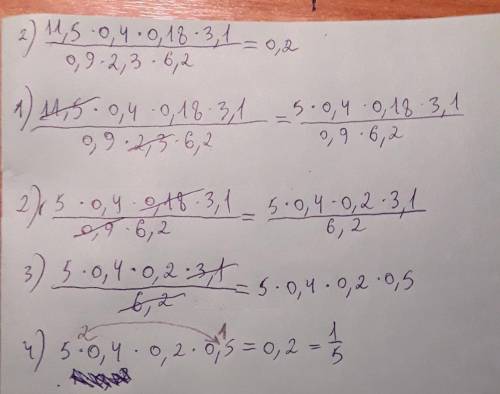 2) (11,5 · 0,4 · 0,18 · 3,1) / (0,9 · 2,3 · 6,2) = 0,2
1) (11,5 · 0,4 · 0,18 · 3,1) / (0,9 · 2,3 · 6,2) = (5 · 0,4 · 0,18 · 3,1) / (0,9 · 6,2)
2) (5 · 0,4 · 0,18 · 3,1) / (0,9 · 6,2) = (5 · 0,4 · 0,2 · 3,1) / 6,2
3) (5 · 0,4 · 0,2 · 3,1) / 6,2 = 5 · 0,4 · 0,2 · 0,5
2 1
4) 5 · 0,4 · 0,2 · 0,5 = 0,2 = 1/5